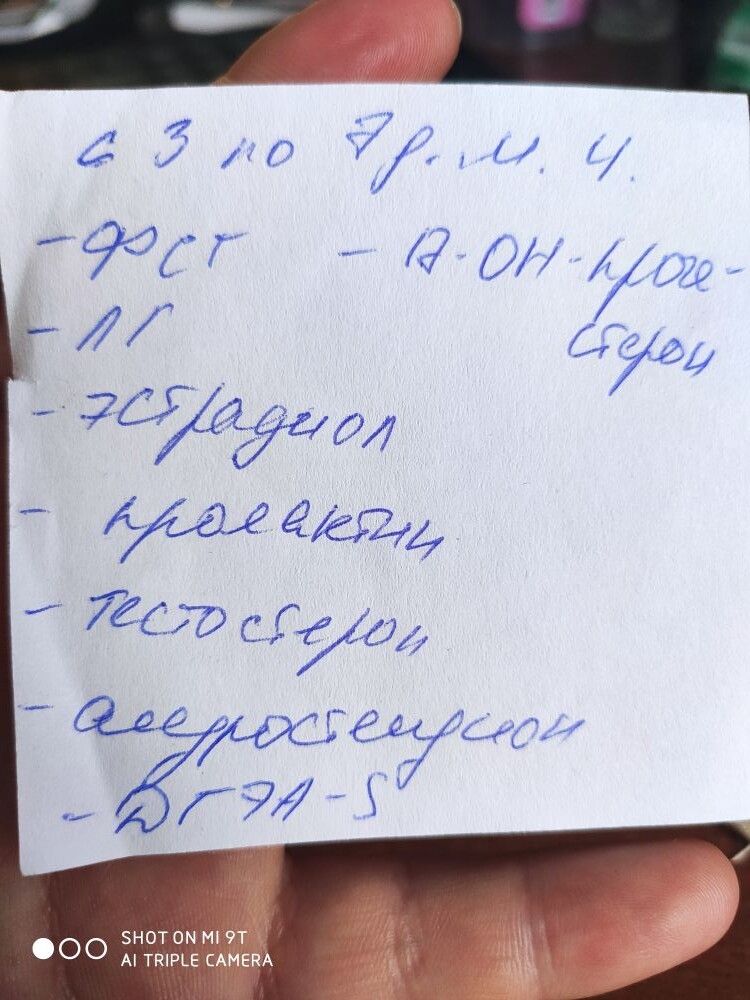 с 3 по 7 д. м. ц.
- ФСГ - 17-ОН-проге-
- ЛГ стерон
- эстрадиол
- пролактин
- тестостерон
- андростендион
- ДГЭА-S
SHOT ON MI 9T
AI TRIPLE CAMERA